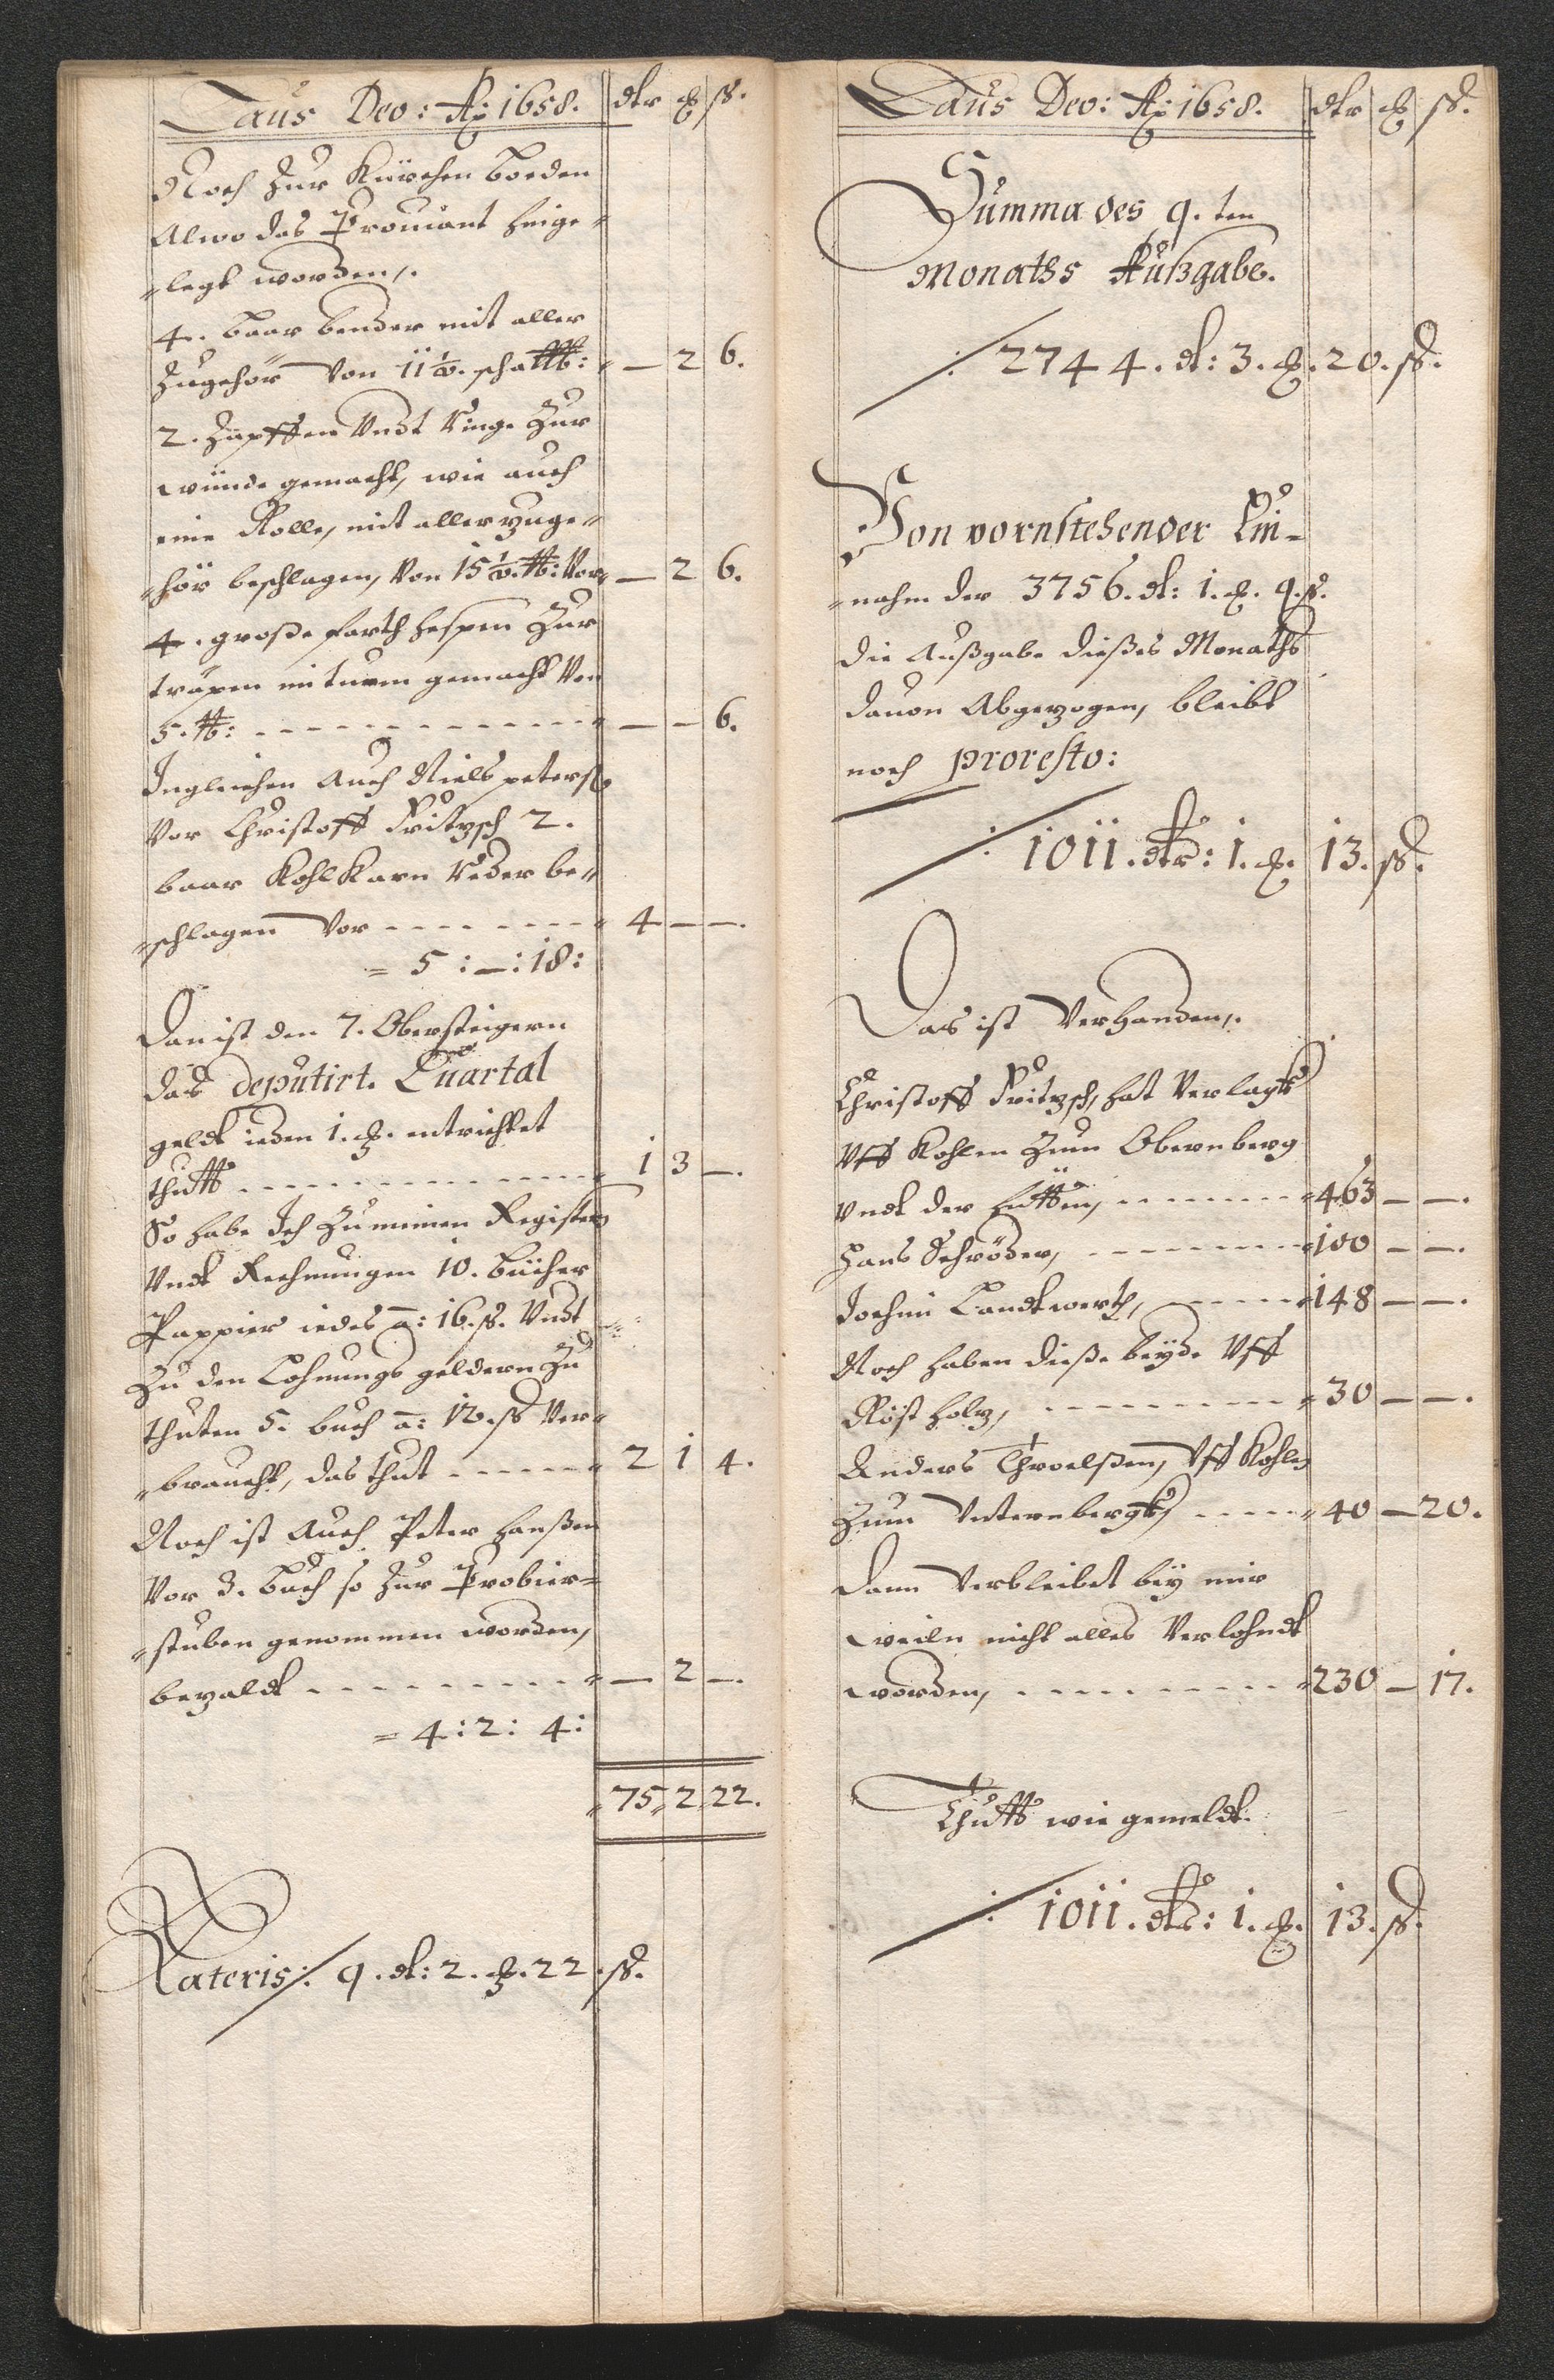 Laus Deo: Aō 1658. dlr ȶ ß.
Noch Zur Kürchen boeden
Alwo das Prouiant hinge¬
¬legt worden,.
4. baar bender mit aller
Zugehör Von 11½. schal℔: — 2 6.
2. Zäpffen Vndt Ringe Zur
wünde gemacht, wie auch
eine Rolle, mit aller zuge¬
¬hör beschlagen, Von 15½. ℔: Vor — 2 6.
4. große farth hespen Zur
träpen mit gemacht Von
5. ℔: — — 6.
Ingleichen Auch Niels peterß
Vor Christoff Fritzsch 2.
baar Kohl Karn Reder be¬
¬schlagen Vor 4 — —.
= 5 : — : 18 :
Dan ist den 7. Obersteigern
das deputirt. Quartal
geldt ieden 1. ȶ. entrichtet
thutt 1 3 —.
So habe Ich Zu meinen Registern
Vndt Rechnungen 10. bücher
Pappier iedes a: 16. ß. Vndt
Zu den Lohnungs geldern Zu
thuten 5. buch a: 12. ß Ver¬
¬braucht, das thut 2 1 4.
Noch ist Auch Peter hanßen
Vor 3. buch so Zur Probier=
¬stuben genommen worden,
bezaldt — 2 —.
= 4 : 2 : 4 :
75 2 22.
Lateris: 9. dl: 2. ȶ. 22. ß.
Laus Deo: Aō 1658. dlr ȶ ß.
Summa des 9. ten
Monaths Außgabe.
2744. dl: 3. ȶ. 20. ß.
Von vornstehender Ein¬
¬nahm der 3756. dl: 1. ȶ. 9. ß.
die Außgabe dießes Monaths
dauon Abgezogen, bleibt
noch proresto:
1011. dlr: 1. ȶ. 13. ß.
Das ist Verhanden,.
Christoff Fritzsch, hat Verlagts
Vff Kohlen Zum Obernberg
Vndt der hütten, 463 — —.
Hans Schröder, 100 — —.
Jochim Landtwerth, 148 — —.
Noch haben dieße beyde Vff
Röst holz, 30 — —.
Anders Throelßen, Vff Kohlen
Zum Vnternbergk, 40 — 20.
Dann Verbleibet bey mir
weiln nicht alles Verlohndt
worden, 230 — 17.
Thutt wie gemeldt.
1011. dlr: 1. ȶ. 13. ß.